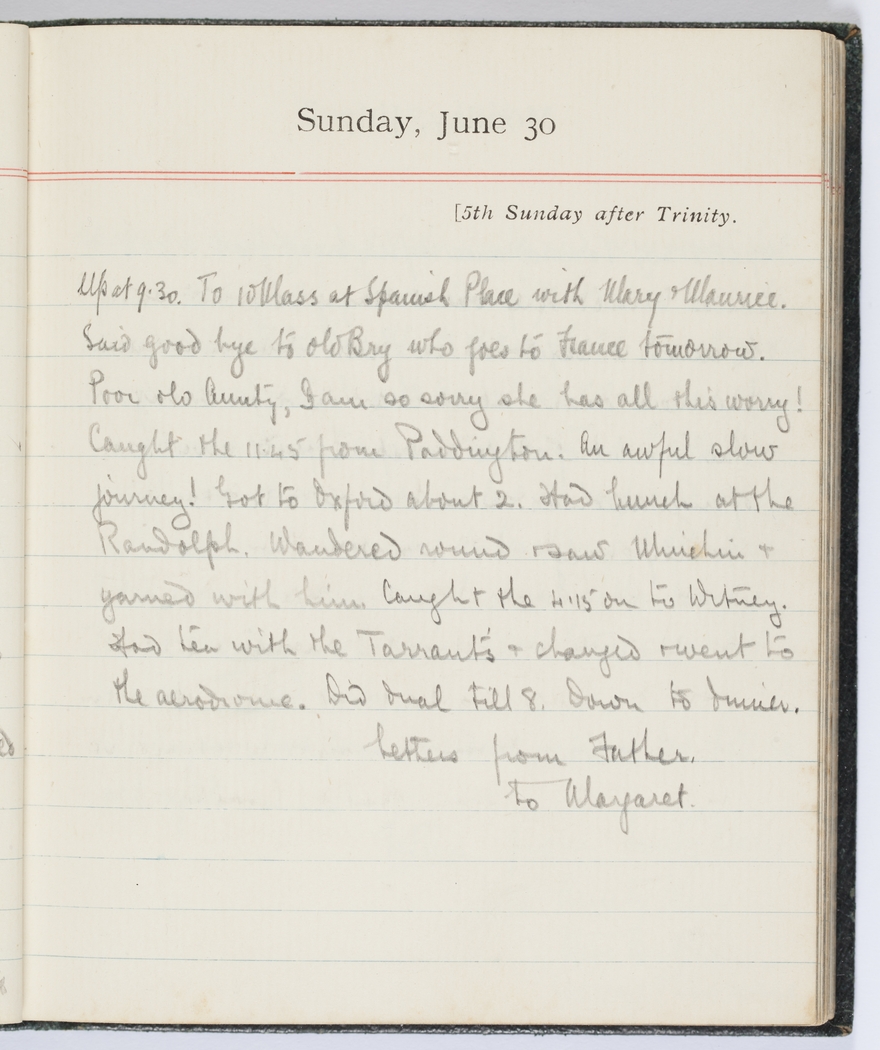 Sunday, June 30
[5th Sunday after Trinity.
Up at 9.30. To 10 Mass at Spanish Place with Mary & Maurice.
Said good bye to old Bry who goes to France tomorrow.
Poor old Aunty, I am so sorry she has all this worry!
Caught the 11.45 from Paddington. An awful slow
journey! Got to Oxford about 2. Had lunch at the
Randolph. Wandered round & saw &
yarned with him. Caught the 4.15 on to Witney.
Had tea with the Tarrant's & changed & went to
the aerodrome. Did dual till 8. Down to dinner.
Letters from Father.
To Margaret.